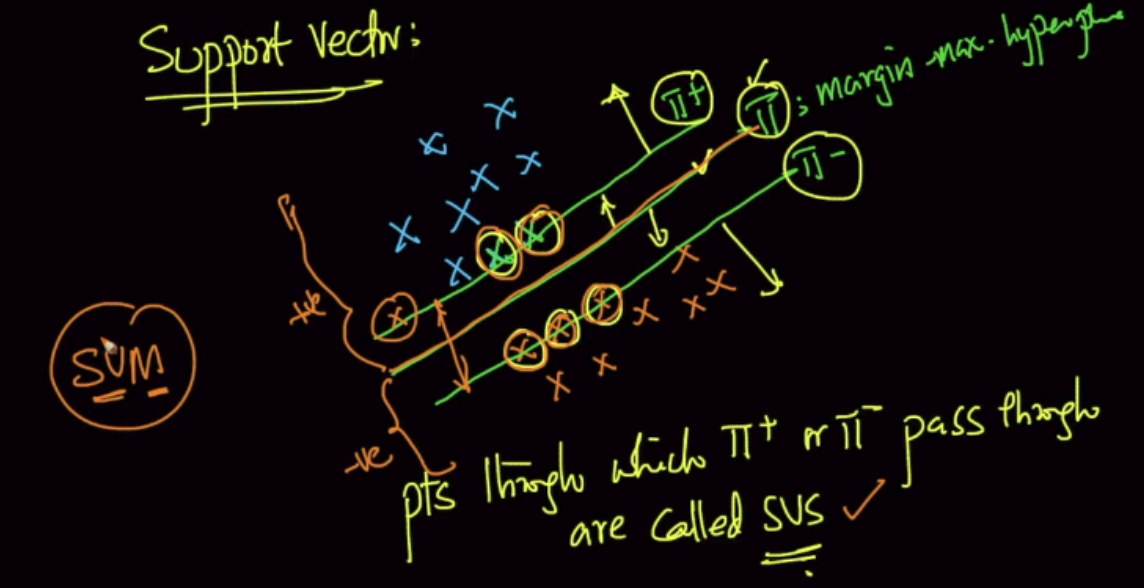 Support Vectr:
π+
π : margin max. hyperplane
π-
+ve
SVM
-ve
pts through which π+ or π- pass through
are called SVS ✓